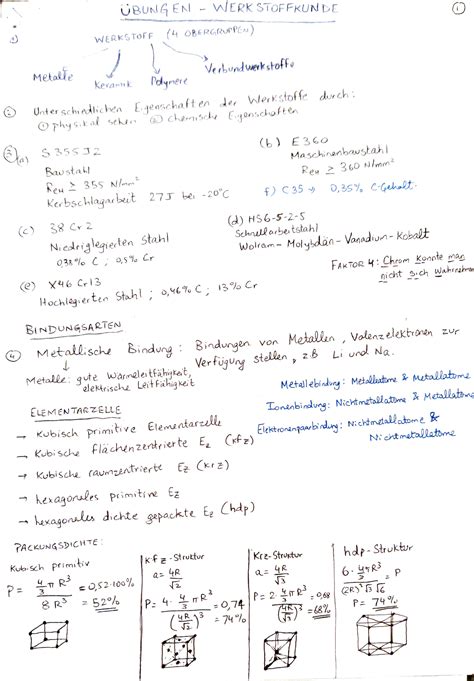 ÜBUNGEN - WERKSTOFFKUNDE
①
① WERKSTOFF (4 OBERGRUPPEN)
Metalle Keramik Polymere Verbundwerkstoffe
② Unterschiedlichen Eigenschaften der Werkstoffe durch:
① physikalischen ② chemische Eigenschaften
③ (a) S355J2
Baustahl
ReH ≥ 355 N/mm²
Kerbschlagarbeit 27J bei -20°C
(b) E360
Maschinenbaustahl
ReH ≥ 360 N/mm²
f) C35 → 0,35% C-Gehalt.
(c) 38Cr2
Niedriglegierten Stahl
0,38% C, 0,5% Cr
(d) HS6-5-2-5
Schnellarbeitstahl
Wolfram-Molybdän-Vanadium-Kobalt
(e) X46Cr13
Hochlegierten Stahl; 0,46% C; 13% Cr
FAKTOR 4: Chrom konnte man
nicht sich Wahrnehmen
BINDUNGSARTEN
④ Metallische Bindung: Bindungen von Metallen, Valenzelektronen zur
Verfügung stellen, z.B Li und Na.
Metalle: gute Wärmeleitfähigkeit,
elektrische Leitfähigkeit
Metallebindung: Metallatome & Metallatome
Ionenbindung: Nichtmetallatome & Metallatome
Elektronenpaarbindung: Nichtmetallatome &
Nichtmetallatome
ELEMENTARZELLE
→ Kubisch primitive Elementarzelle
→ Kubische flächenzentrierte Ez (kfz)
→ Kubische raumzentrierte Ez (krz)
→ hexagonales primitive Ez
→ hexagonales dichte gepackte Ez (hdp)
PACKUNGSDICHTE:
Kubisch primitiv
P = 4/3 π R³ / 8R³ = 0,52·100% = 52%
kfz-Struktur
a = 4R/√2
P = 4 · 4/3 π R³ / (4R/√2)³ = 0,74 = 74%
Krz-Struktur
a = 4R/√3
P = 2 · 4/3 π R³ / (4R/√3)³ = 0,68 = 68%
hdp-Struktur
= P
P = 74%